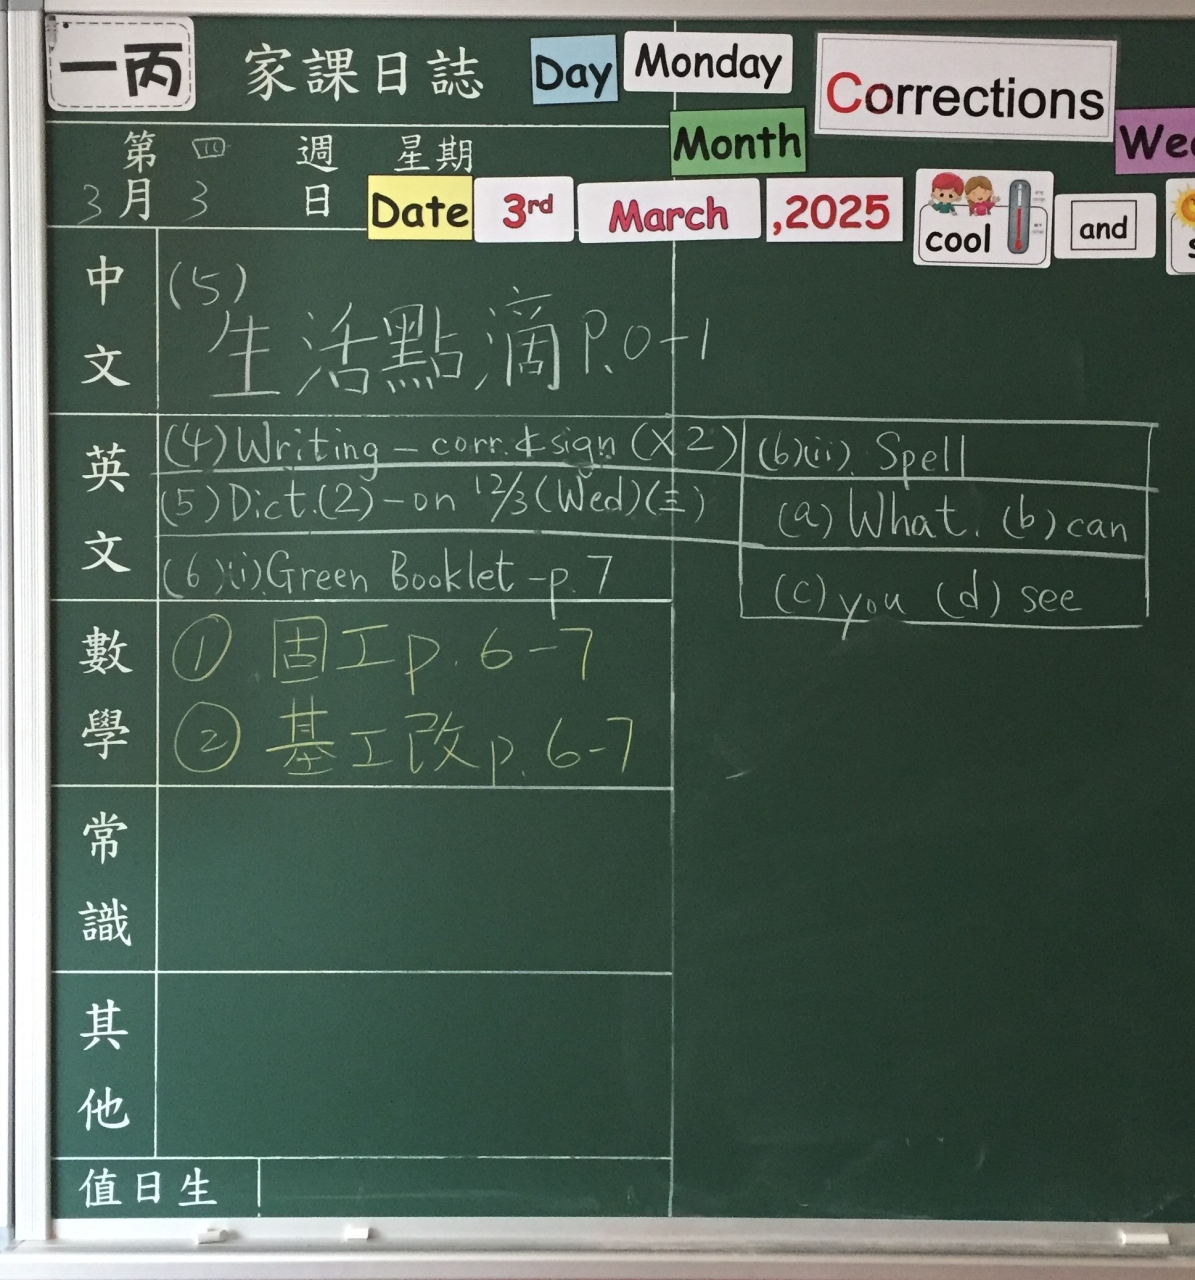 一丙 家課日誌 Day Monday Corrections
Month
第 四 週 星期
3 月 3 日 Date 3rd March ,2025 cool and
中文
(5)
生活點滴P.0-1
英文
(4) Writing – corr. & sign (X2)
(5) Dict.(2) – on 12/3 (Wed)(三)
(6)(i). Green Booklet – p. 7
(6)(ii). Spell
(a) What. (b) can
(c) you (d) see
數學
① 固工p. 6-7
② 基工改p. 6-7
常識
其他
值日生